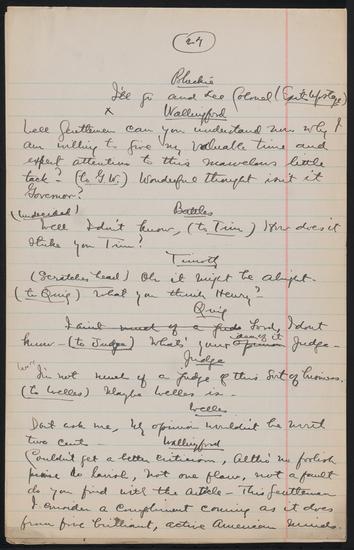 (27)
Blackie
I'll go and see Colonel (Exits Upstage)
x Wallingford
Well Gentlemen can you understand now why I
am willing to give my valuable time and
expert attention to this marvelous little
tack? (to G.W.) Wonderful thought isn't it
Governor?
(undecided) Battles
Well I don't know, (to Tim) How does it
strike you Tim?
Timothy
(Scratches head) Oh it might be alright.
(to Quig) What you think Henry?
Quig
I aint much of a Lordy, I don't
know - (to Judge) Whats' your idea of it opinion Judge -
Judge
I'm not much of a judge of this sort of business.
(to Welles) Maybe Welles is -
Welles
Dont ask me, My opinion wouldn't be worth
two cents -
Wallingford
Couldn't get a better criticism, Altho' no foolish
praise do lavish, not one flaw, not a fault
do you find with the article - This Gentlemen
I consider a compliment coming as it does
from five brilliant, active American minds.